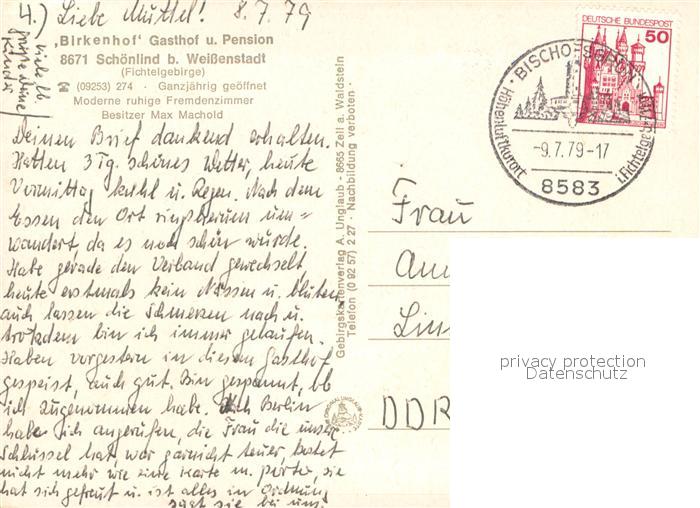 4.) Liebe Muttel! 8.7.79
"Birkenhof" Gasthof u. Pension
8671 Schönlind b. Weißenstadt
(Fichtelgebirge)
(09253) 274 · Ganzjährig geöffnet
Moderne ruhige Fremdenzimmer
Besitzer Max Machold
Deinen Brief dankend erhalten.
Hatten 3 Tg. schönes Wetter, heute
Vormittag kühl u. Regen. Nach dem
Essen den Ort ringsherum um=
wandert, da es noch schön wurde.
Habe gerade den Verband gewechselt
heute erstmals kein Nässen u. bluten,
auch lassen die Schmerzen nach u.
trotzdem bin ich immer gelaufen.
Haben vorgestern in diesem Gasthof
gespeist, auch gut. Bin gespannt, ob
ich zugenommen habe. Nach Berlin
habe ich angerufen, die Frau die unsere
Schlüssel hat, war garnicht teuer, kostet
nicht mehr wie eine Karte m. Porto, sie
hat sich gefreut u. ist alles in Ordnung
sagt sie bei uns.
Viele lb.
Grüße
Kinder
Gebirgskartenverlag A. Unglaub · 8665 Zell a. Waldstein
Telefon (0 92 57) 2 27 · Nachbildung verboten
DEUTSCHE BUNDESPOST
50
BISCHOFSGRÜN
Höhenluftkurort
i. Fichtelgeb.
-9.7.79-17
8583
Frau
DDR
privacy protection
Datenschutz